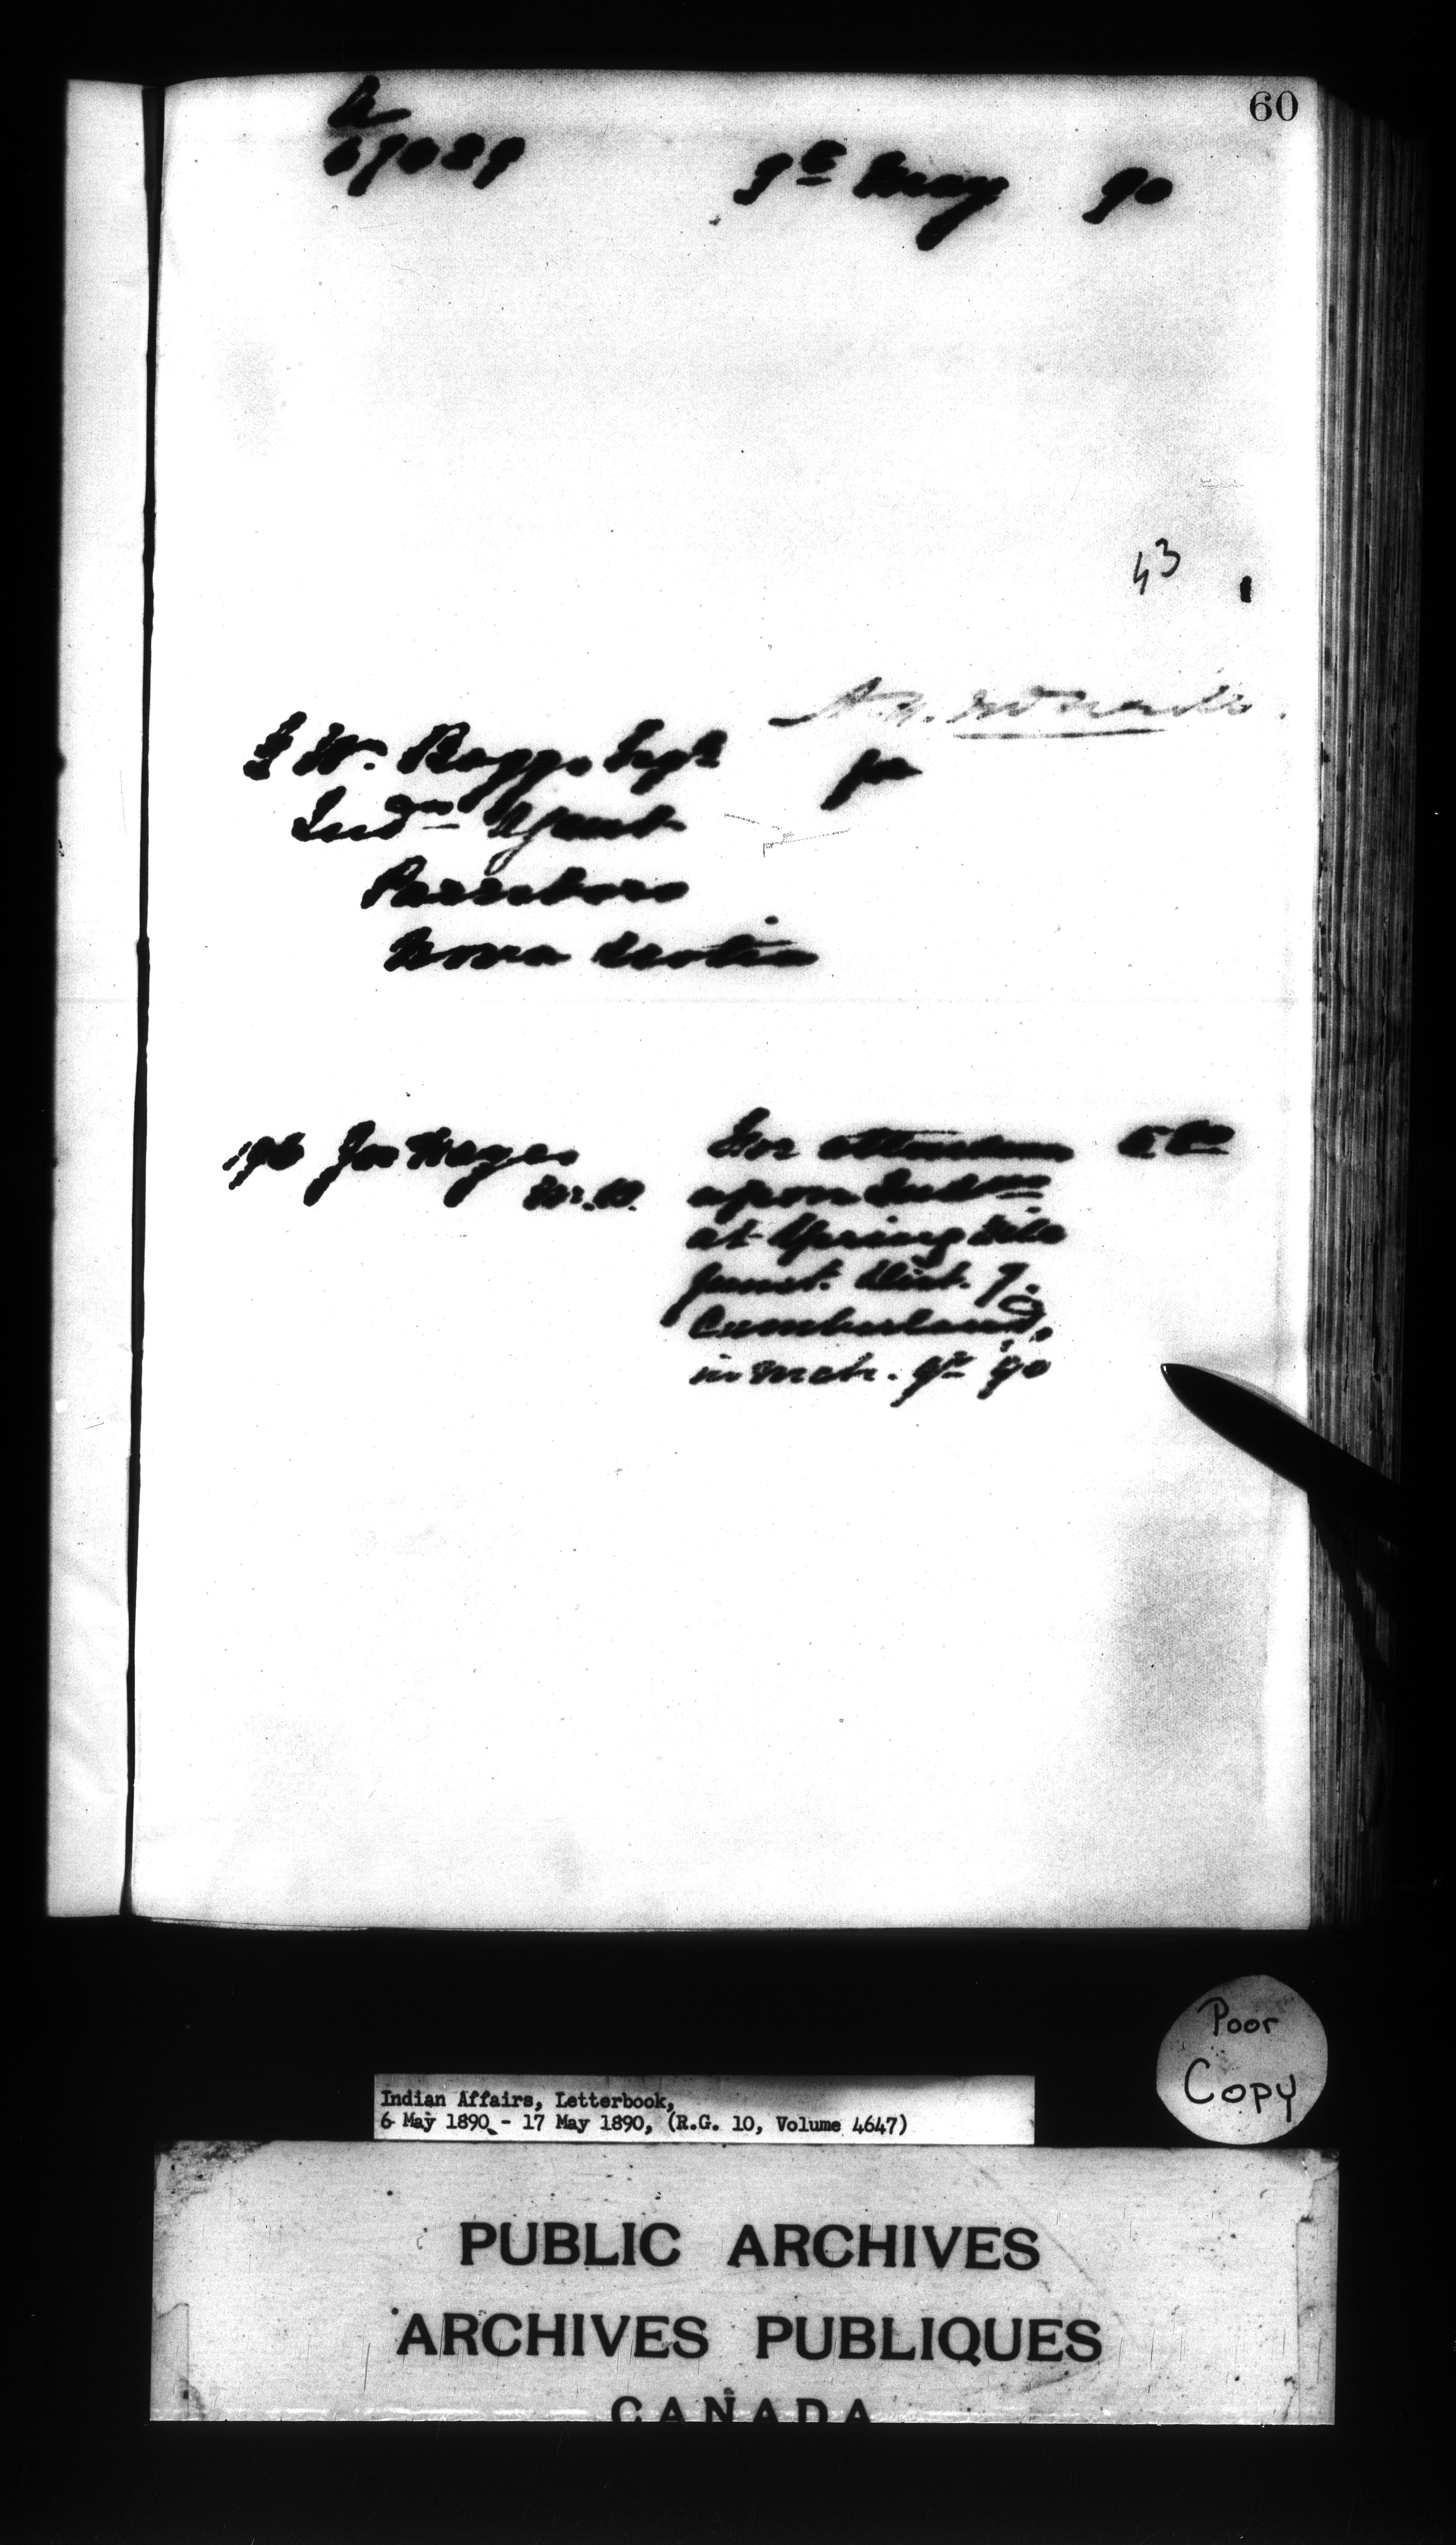 60
9th May 90
43
W. Boggs Esqre
Indn Agent
Parrsboro
Nova Scotia
196 Jas Hayes
M.D.
For attendance
upon Indns
at Spring Hill
Junct. Dist. 
Cumberland,
in Mch. 90
Poor
Copy
Indian Affairs, Letterbook,
6 May 1890 - 17 May 1890, (R.G. 10, Volume 4647)
PUBLIC ARCHIVES
ARCHIVES PUBLIQUES
CANADA